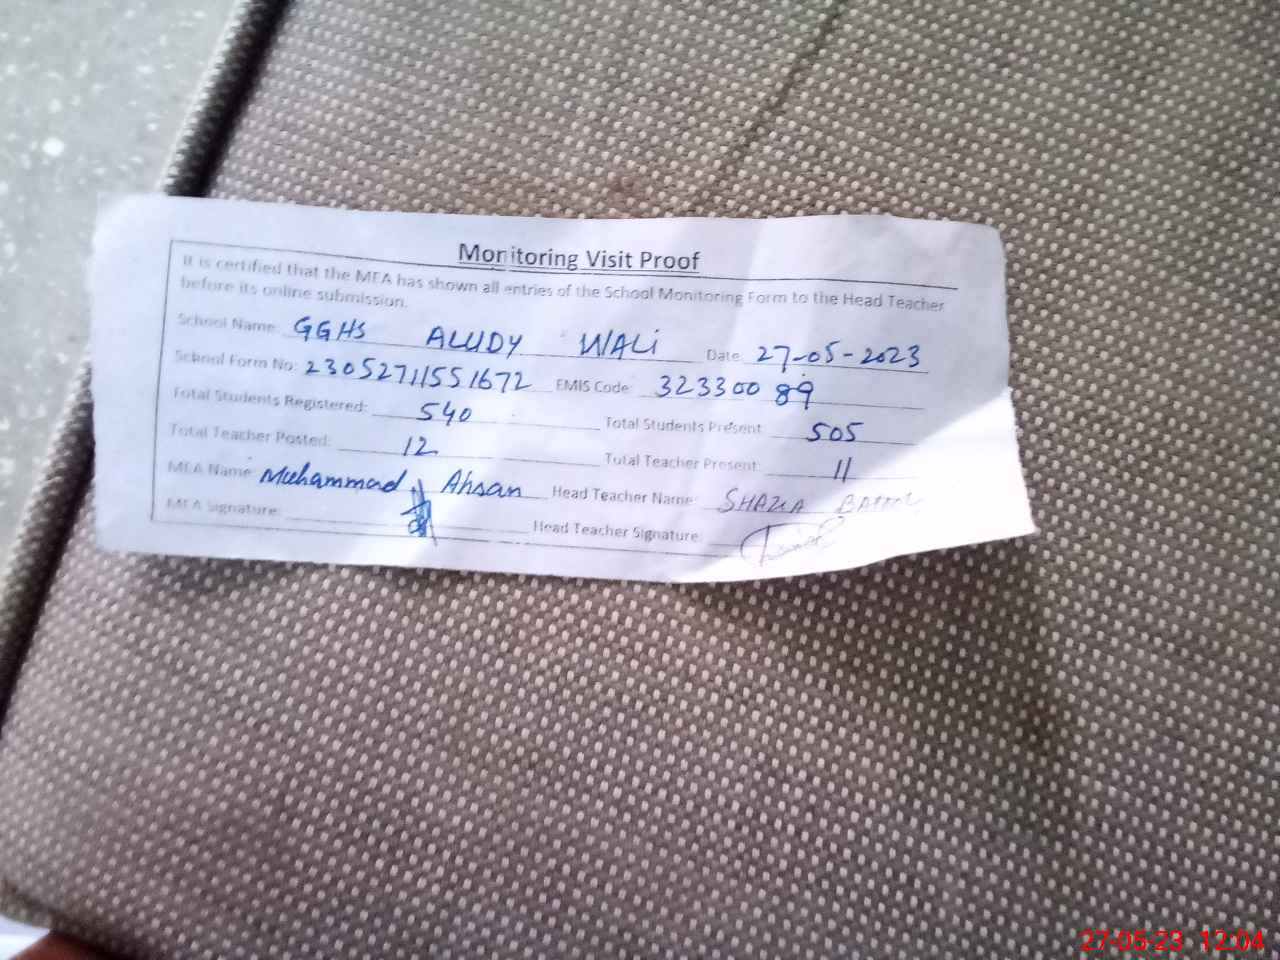 Monitoring Visit Proof
It is certified that the MEA has shown all entries of the School Monitoring Form to the Head Teacher
before its online submission.
School Name: GGHS ALUDY WALi Date: 27-05-2023
School Form No: 23052711551672 EMIS Code: 32330089
Total Students Registered: 540 Total Students Present: 505
Total Teacher Posted: 12 Total Teacher Present: 11
MEA Name: Muhammad Ahsan Head Teacher Name: SHAZIA
MEA Signature: Head Teacher Signature:
27-05-23 12:04